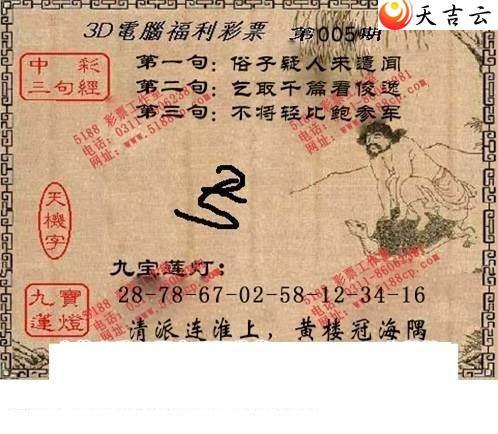 天吉云
3D電腦福利彩票 第005期
中彩
三句經
第一句：俗子疑人未遣闻
第二句：乞取千篇看俊逸
第三句：不将轻比鲍参军
5188 彩票工作室
网址：www.5188cp.com
天機字
九寶
蓮燈
九宝莲灯：
28-78-67-02-58-12-34-16
清派连淮上，黄楼冠海隅